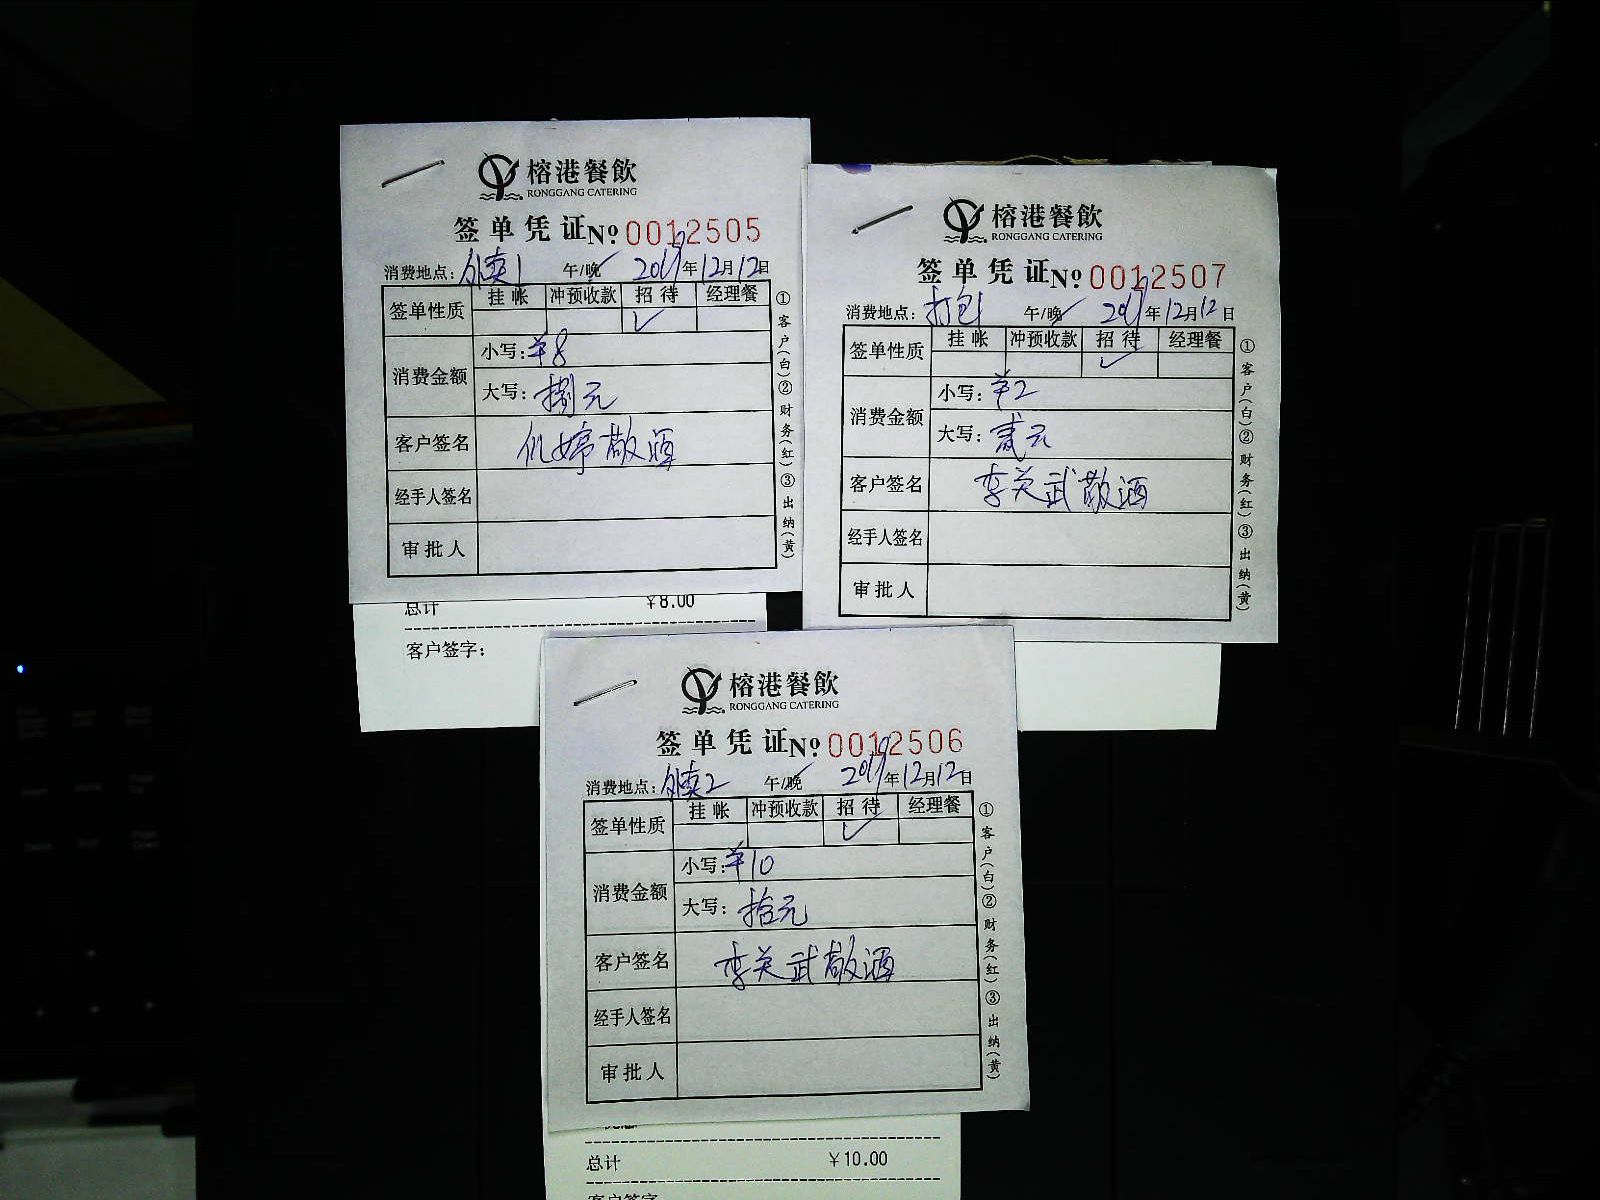 榕港餐飲
RONGGANG CATERING
签单凭证 № 0012505
消费地点: 外卖1 午/晚 2019年12月12日
签单性质 挂帐 冲预收款 招待 经理餐
✓
消费金额
小写: ¥8
大写: 捌元
客户签名 婷敬酒
经手人签名
审批人
①客户(白)②财务(红)③出纳(黄)
总计 ¥8.00
客户签字:
榕港餐飲
RONGGANG CATERING
签单凭证 № 0012507
消费地点: 打包 午/晚 2019年12月12日
签单性质 挂帐 冲预收款 招待 经理餐
✓
消费金额
小写: ¥2
大写: 贰元
客户签名 李关武敬酒
经手人签名
审批人
①客户(白)②财务(红)③出纳(黄)
榕港餐飲
RONGGANG CATERING
签单凭证 № 0012506
消费地点: 外卖2 午/晚 2019年12月12日
签单性质 挂帐 冲预收款 招待 经理餐
✓
消费金额
小写: ¥10
大写: 拾元
客户签名 李关武敬酒
经手人签名
审批人
①客户(白)②财务(红)③出纳(黄)
总计 ¥10.00
客户签字